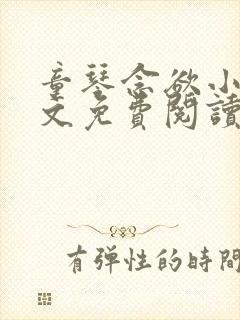 童琴念欲小
文免費閱讀
有弹性的時間